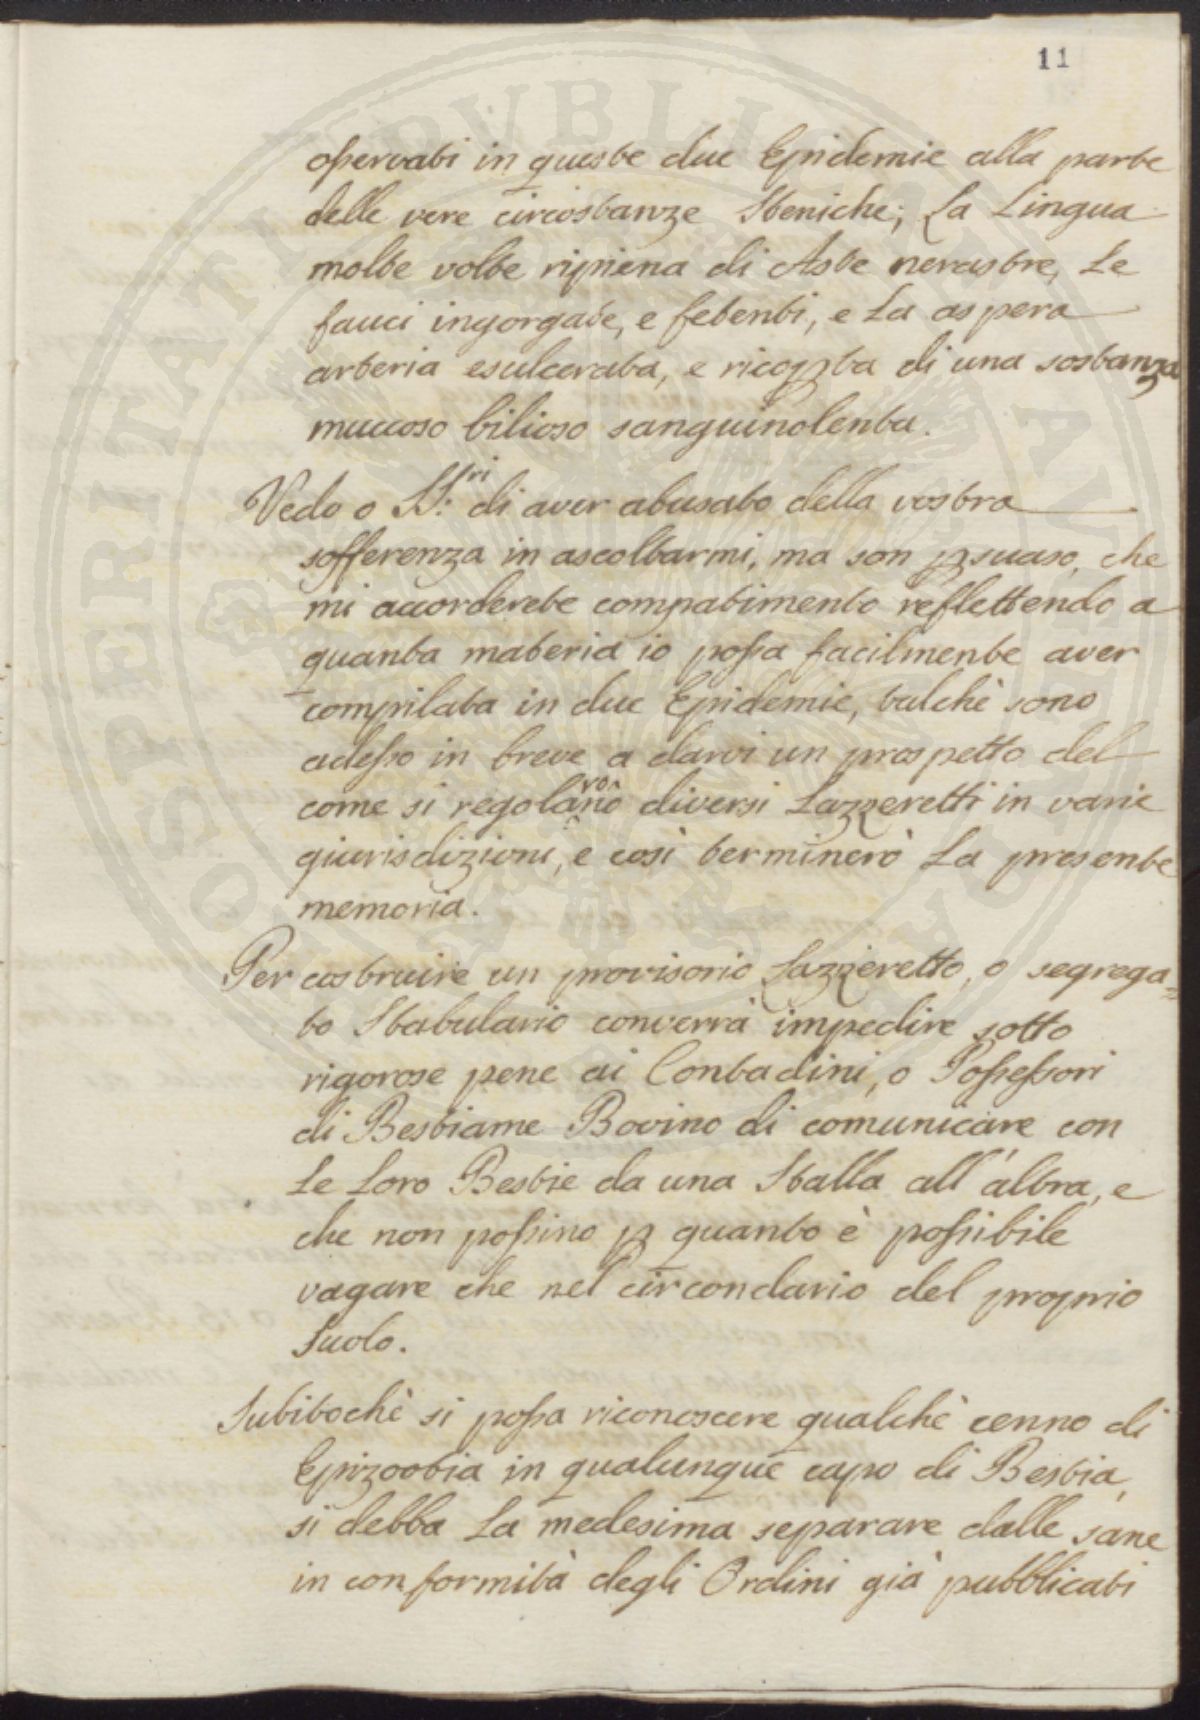 11
osservati in queste due Epidemie alla parte
delle vere circostanze Steniche; La Lingua
molte volte ripiena di Aste nerastre, Le
fauci ingorgate, e fetenti, e La aspera
arteria esulcerata, e ricopta di una sostanza
muccoso bilioso sanguinolenta.
Vedo o SS.ri di aver abusato della vostra
sofferenza in ascoltarmi, ma son psuaso, che
mi accorderete compatimento reflettendo a
quanta materia io possa facilmente aver
compilata in due Epidemie, talchè sono
adesso in breve a darvi un prospetto del
come si regolarono diversi Lazzeretti in varie
giurisdizioni, e così terminerò La presente
memoria.
Per costruire un provisorio Lazzeretto, o segrega=
to Stabulario converrà impedire sotto
rigorose pene ai Contadini, o Possessori
di Bestiame Bovino di comunicare con
Le Loro Bestie da una Stalla all'altra, e
che non possino p quanto è possibile
vagare che nel circondario del proprio
Suolo.
Subitochè si possa riconoscere qualchè cenno di
Epizootia in qualunque capo di Bestia,
si debba La medesima separare dalle sane
in conformità degli Ordini già pubblicati
PROSPERITATI PUBLICAE AUGENDAE